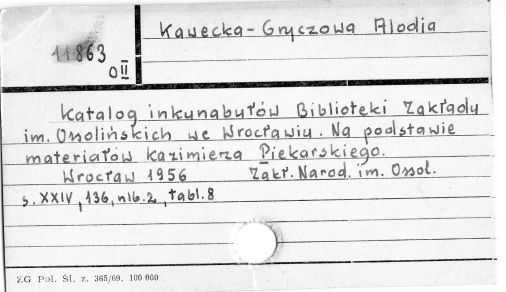 Kawecka-Gryczowa Alodia
11863
OII
Katalog inkunabułów Biblioteki Zakładu
im. Ossolińskich we Wrocławiu. Na podstawie
materiałów Kazimierza Piekarskiego.
Wrocław 1956 Zakł. Narod. im. Ossol.
s. XXIV, 136, nlb. 2, tabl. 8
ZG Pol. Śl. z. 365/69. 100 000